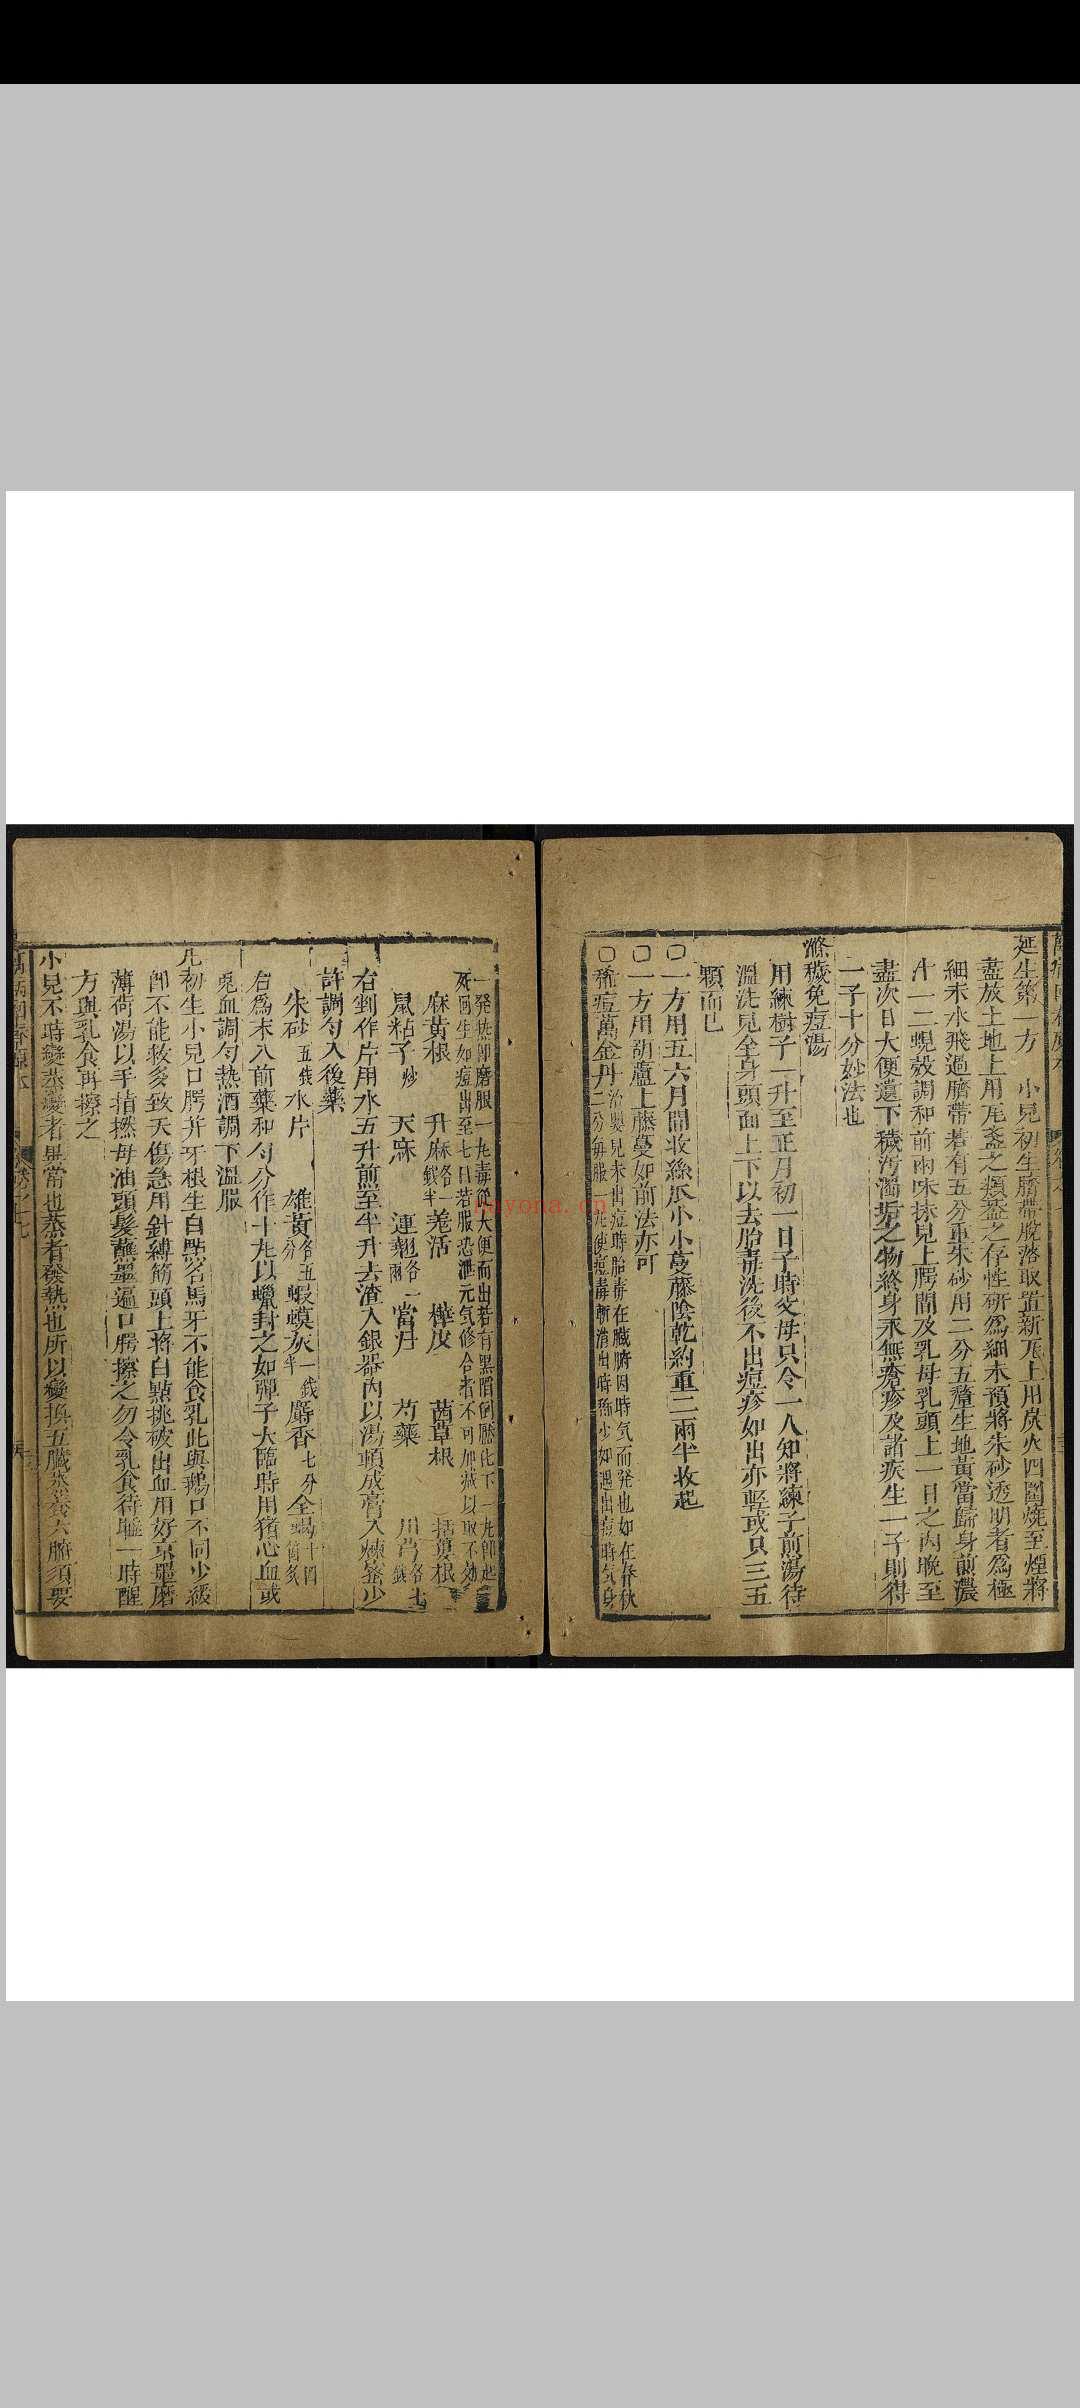 延生第一方　小兒初生臍帶脫落取置新瓦上用炭火四圍燒至煙將
盡放土地上用瓦盞之類盖之存性研為細末預將朱砂透明者為極
細末水飛過臍帶若有五分重朱砂用二分五釐生地黃當歸身煎濃
汁一二蜆殼調和前兩味抹兒上腭間及乳母乳頭上一日之內晚至
盡次日大便遺下穢汚濁垢之物終身永無瘡疹及諸疾生一子則得
一子十分妙法也
滌穢免痘湯
用練樹子一升至正月初一日子時父母只令一人知將練子煎湯待
溫洗兒全身頭面上下以去胎毒洗後不出痘疹如出亦輕或只三五
顆而已
○一方用五六月間收絲瓜小小蔓藤陰乾約重二兩半收起
○一方用葫蘆上藤蔓如前法亦可
○稀痘萬金丹治嬰兒未出痘時胎毒在臟腑因時気而発也如在春秋
二分每服一丸使痘毒漸消出時稀少如遇出痘時気身
一発熱即磨服一丸毒從大便而出若有黑陷倒靨化下一丸即起
死回生如痘出至七日若服恐泄元気修合者不可加减以取不効
麻黃根　升麻各一錢半　羗活　樺皮　茜草根　括蔞根
鼠粘子炒　天麻　連翹各一兩　當歸　芍藥　川芎各七錢
右剉作片用水五升煎至半升去渣入銀器內以湯頓成膏入煉蜜少
許調勻入後藥
朱砂五錢　氷片　雄黃各五分　蝦蟆灰一錢半　麝香七分　全蝎十四箇炙
右為末入前藥和勻分作十丸以蠟封之如彈子大臨時用猪心血或
兎血調勻熱酒調下溫服
凡初生小兒口腭并牙根生白點名馬牙不能食乳此與鵝口不同少緩
即不能救多致夭傷急用針縛筋頭上將白點挑破出血用好京墨磨
薄荷湯以手指撚母油頭髮蘸墨遍口腭擦之勿令乳食待睡一時醒
方與乳食再擦之
小兒不時變蒸變者異常也蒸者發熱也所以變換五臟蒸養六腑須要